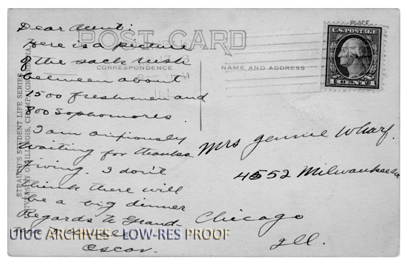 PLACE
U.S. POSTAGE
1 CENT 1
POST CARD
CORRESPONDENCE
NAME AND ADDRESS
STRAUCH'S STUDENT LIFE SERIES
UNIVERSITY OF ILLINOIS, CHAMPAIGN
Dear Aunt:
Here is a picture
of the sack rush
between about
1500 freshmen and
800 Sophomores.
I am anxiously
waiting for thanks
giving. I don't
think there will
be a big dinner
Regards to Grand
Oscar.
Mrs Jennie Wharf.
4552 Milwaukee Ave
Chicago
Ill.
UIUC ARCHIVES - LOW-RES PROOF